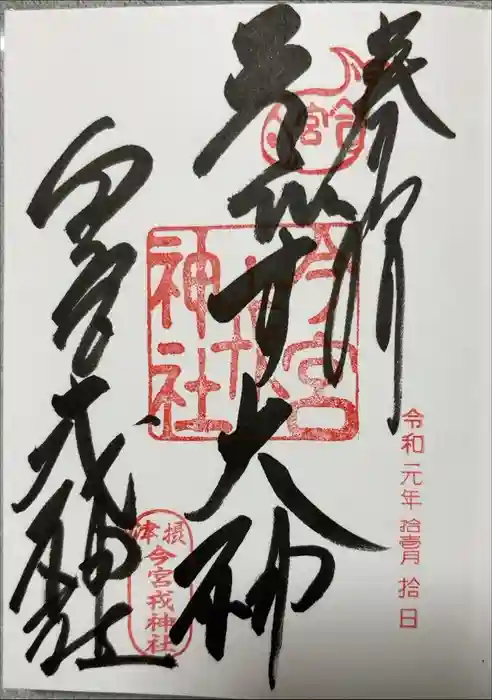 奉拝
今宮
ゑびす大神
今宮戎神社
今宮戎神社
摂津
今宮戎神社
令和元年拾壹月拾日